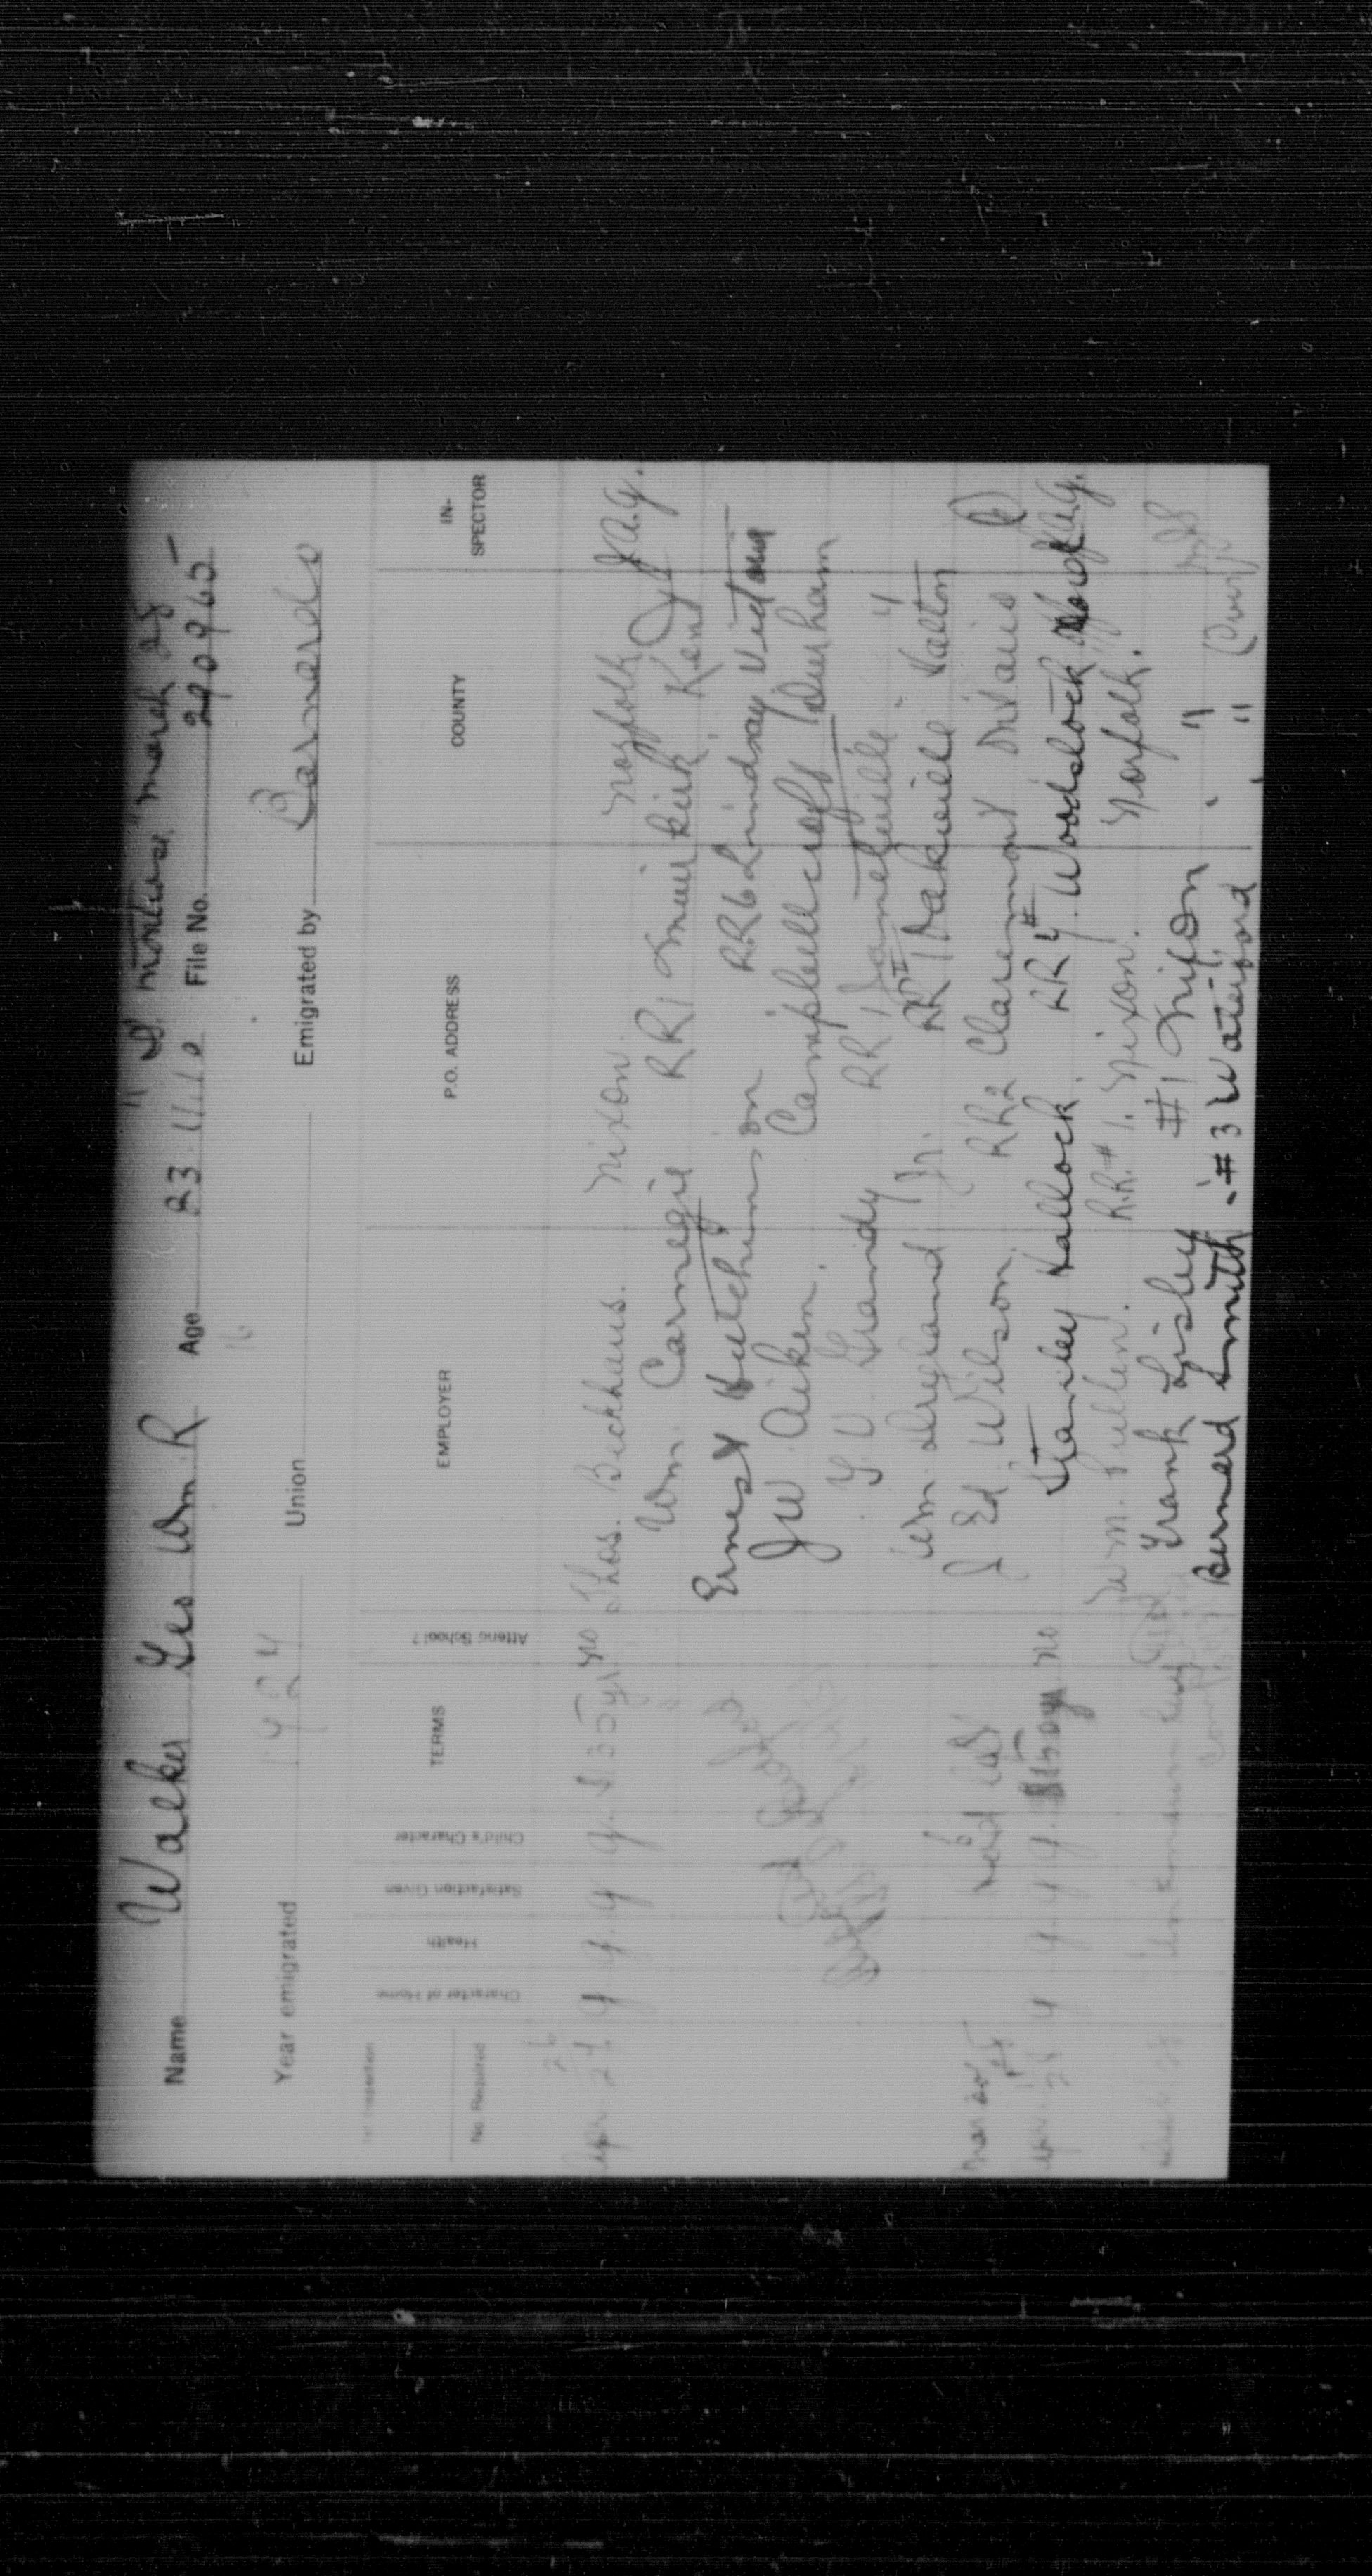 " S. Montrose March 28
Name Walker Geo Wm R Age 23.11.10 File No. 290965
16
Year emigrated 1924 Union Emigrated by Barnardo
1st Inspection
No Required
Character of Home Health Satisfaction Given Child's Character TERMS Attend School? EMPLOYER P.O. ADDRESS COUNTY IN-SPECTOR
26
Apr. 24. g g. g g. $130 yr. no Thos. Beckhaus. Nixon. Norfolk J.A.G.
" Wm. Carnegie RR1 Muirkirk, Kent
Ernest Hutchinson RR6 Lindsay Victoria
JW Aiken. Campbellcroft Durham
G. V. Grandy RR1 Janetville "
Wm. England Jr. RR1 Oakville Halton
Mar 20 28 J Ed Wilson. RR2 Claremont Ontario
Apr. 28 g g. g g. $150 yr. no Stanley Hallock. RR4 Woodstock Oxford J.A.G.
Wm. Pullen. R.R.#1. Nixon. Norfolk.
Frank Lisley #1 Nixon "
Bernard Smith - #3 Waterford " (Over)